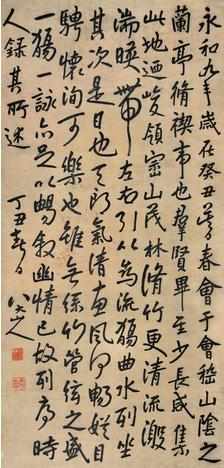 永和九年歲在癸丑暮春會于會稽山陰之
蘭亭脩禊事也羣賢畢至少長咸集
此地迺峻領崇山茂林脩竹更清流激
湍暎帶左右引以為流觴曲水列坐
其次是日也天朗氣清惠風和暢娛目
騁懷洵可樂也雖無絲竹管弦之盛
一觴一詠亦足以暢敘幽情已故列序時
人錄其所述 丁丑春日 八大山人